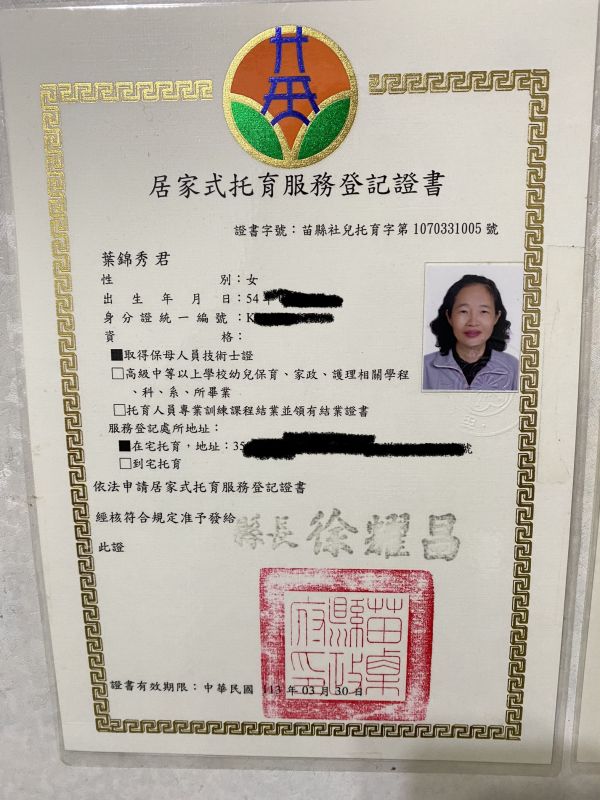 居家式托育服務登記證書
證書字號：苗縣社兒托育字第1070331005號
葉錦秀君
性別：女
出生年月日：54年
身分證統一編號：K
資格：
■取得保母人員技術士證
□高級中等以上學校幼兒保育、家政、護理相關學程
、科、系、所畢業
□托育人員專業訓練課程結業並領有結業證書
服務登記處所地址：
■在宅托育，地址：35 號
□到宅托育
依法申請居家式托育服務登記證書
經核符合規定准予發給
此證
縣長 徐耀昌
苗栗縣政府印
證書有效期限：中華民國 113 年 03 月 30 日